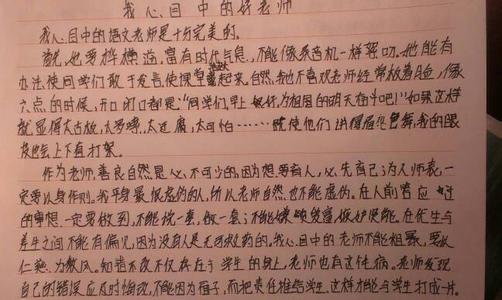 我心目中的好老师
我心目中的语文老师是十分完美的。
首先,他要样横溢,富有时代气息,不能像录音机一样絮叨。他能有
办法使同学们敢于发言,使课堂起来。自然,我也不喜欢老师经常板着脸,像
六点的时候,开口闭口都是"同学们早上好,为祖国的明天奋斗吧!"如果这样
就显得太古板,太罗嗦,太迂腐,太可怕……使他们讲得眉飞色舞,我的眼
皮也会上下直打架。
作为老师,善良自然是必不可少的,因为想要育人,必先自己为人师表,一
定要以身作则。我平身最恨虚伪的人,所以老师自然也不能虚伪。在人前答应过
的事想一定要做到,不能说一套,做一套;不能。在优生与
差生之间不能有偏见,因为没有人是无可救药的。我心目中的老师不能粗暴,要以
仁慈为教风。知错不改不仅存在于学生的身上,老师也有这体病。老师发现
自己的错误应及时悔改,不能因为面子,而把责任推给学生,这样才能与学生打成一片。